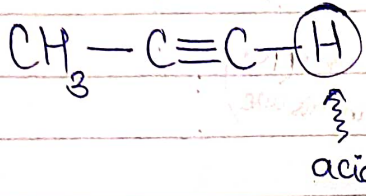 CH₃—C≡C—H
acid